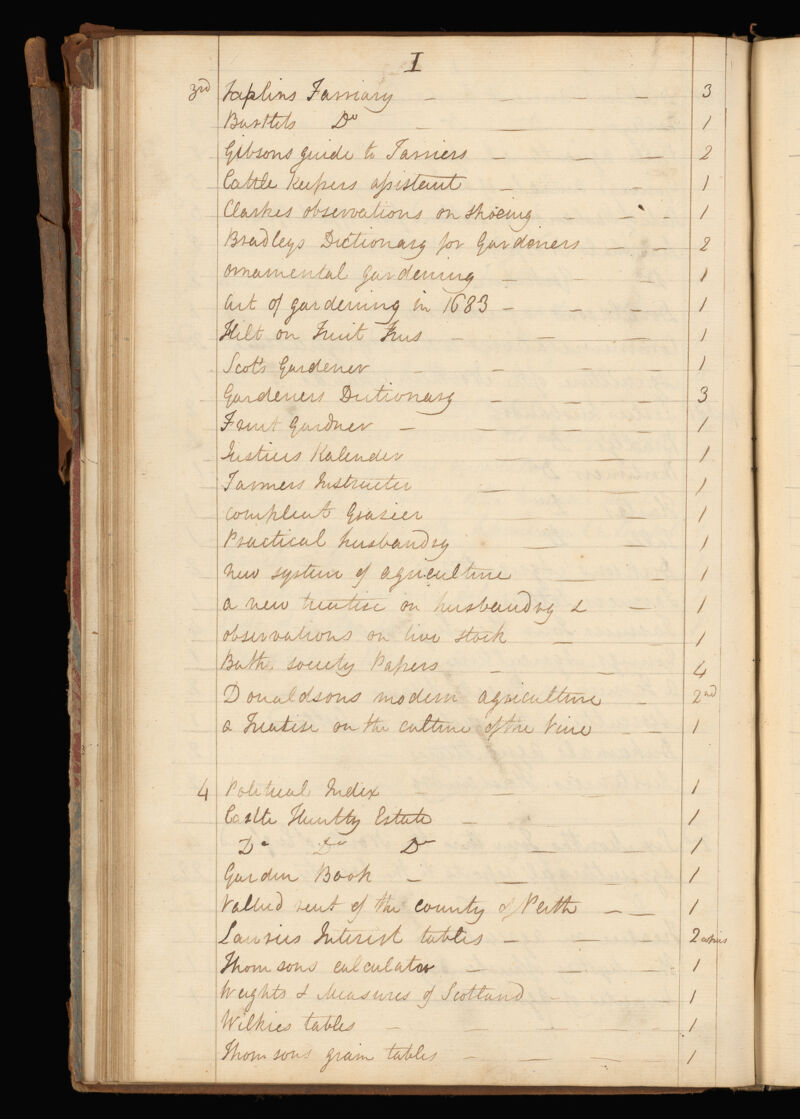 I
3rd Taplins Farriary — — — 3
Bartlets Do — — — 1
Gibsons guide to Farriers — — — 2
Cattle Keepers assistant — — 1
Clarkes observations on shoeing — — - 1
Bradleys Dictionary for Gardeners — — 2
ornamental gardening — — — 1
art of gardening in 1683 — — - 1
Hitt on Fruit Trees — — — 1
Scots Gardener — — — — 1
Gardeners Dictionary — — — 3
Fruit Gardner — — — — 1
Justices Kalender — — 1
Farmers Instructer — — 1
compleat Grasier — 1
Practical husbandry — — 1
new system of agriculture — — 1
a new treatise on husbandry & — 1
observations on live stock — 1
Bath society Papers — — 4
Donaldsons modern agriculture — 2nd
a Treatise on the culture of the Vine — — 1
4 Political Index — — — 1
Castle Huntly Estate — — — 1
Do Do Do — — 1
Garden Book — — — 1
Vallued rent of the county of Perth — — 1
Lauries Interest tables — — 2 copies
Thomsons calculator — — - 1
Weights & Measures of Scotland - — 1
Wilkies tables — — — — 1
Thomsons grain tables — — — 1